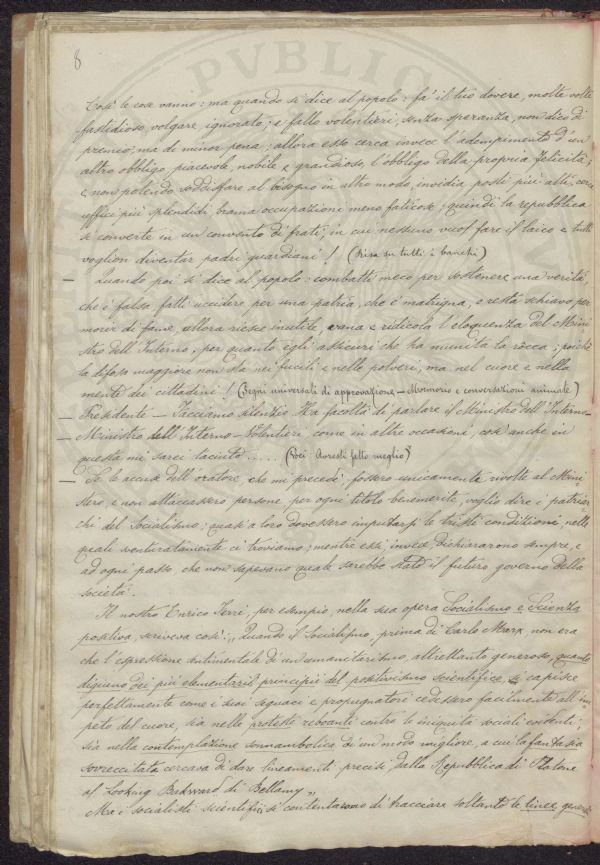 8
Così le cose vanno: ma quando si dice al popolo: fa' il tuo dovere, molte volte
fastidioso, volgare, ignorato; e fallo volentieri, senza speranza, non dico di
premio, ma di minor pena; allora esso cerca invece l'adempimento d'un
altro obbligo, piacevole, nobile e grandioso, l'obbligo della propria felicità;
e non potendo soddisfare al bisogno in altro modo, invidia posti più alti, cerca
uffici più splendidi, brama occupazioni meno faticose; quindi la repubblica
si converte in un convento di frati, in cui nessuno vuol fare il laico e tutti
voglion diventar padri guardiani! (Risa su tutti i banchi)
— Quando poi si dice al popolo: combatti meco per sostenere una verità
che è falsa, fatti uccidere per una patria, che è matrigna, e resta schiavo per
morir di fame, allora riesce inutile, vana e ridicola l'eloquenza del Mini
stro dell'Interno, per quanto egli assicuri che ha munita la ròcca; poichè
la difesa maggiore non sta nei fucili e nelle polveri, ma nel cuore e nella
mente dei cittadini! (Segni universali di approvazione — Mormorio e conversazioni animate)
— Presidente — Facciamo silenzio. Ha facoltà di parlare il Ministro dell'Interno
— Ministro dell'Interno — Volentieri, come in altre occasioni, così anche in
questa mi sarei taciuto..... (Voci: Avresti fatto meglio)
— Se le accuse dell'oratore, che mi precedè, fossero unicamente rivolte al Mini
stero, e non attaccassero persone, per ogni titolo benemerite, voglio dire i patriar
chi del Socialismo; quasi a loro dovessero imputarsi le tristi condizioni, nelle
quali sventuratamente ci troviamo; mentre essi, invece, dichiararono sempre, e
ad ogni passo, che non sapevano quale sarebbe stato il futuro governo della
società.
Il nostro Enrico Ferri, per esempio, nella sua opera Socialismo e Scienza
positiva, scriveva così: „ Quando il Socialismo, prima di Carlo Marx, non era
che l'espressione sentimentale di un umanitarismo, altrettanto generoso, quanto
digiuno dei più elementari principii del positivismo scientifico, si capisce
perfettamente come i suoi seguaci e propugnatori cedessero facilmente all'im
peto del cuore, sia nelle proteste reboanti contro le iniquità sociali esistenti,
sia nella contemplazione sonnambolica di un modo migliore, a cui la fantasia
sovreccitata cercava di dare lineamenti precisi, dalla Repubblica di Platone
al Looking Backward di Bellamy „
Ma i socialisti scientifici si contentarono di tracciare soltanto le linee generali